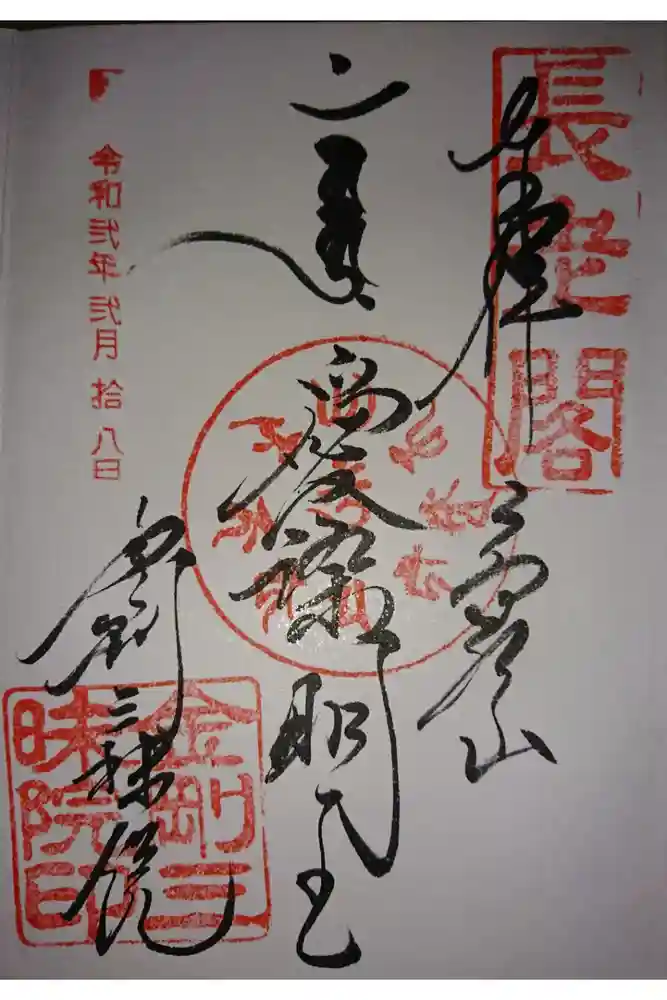 長老閣
奉拝
高野山
愛染明王
令和弐年弐月拾八日
金剛三昧院
金剛三
昧院印